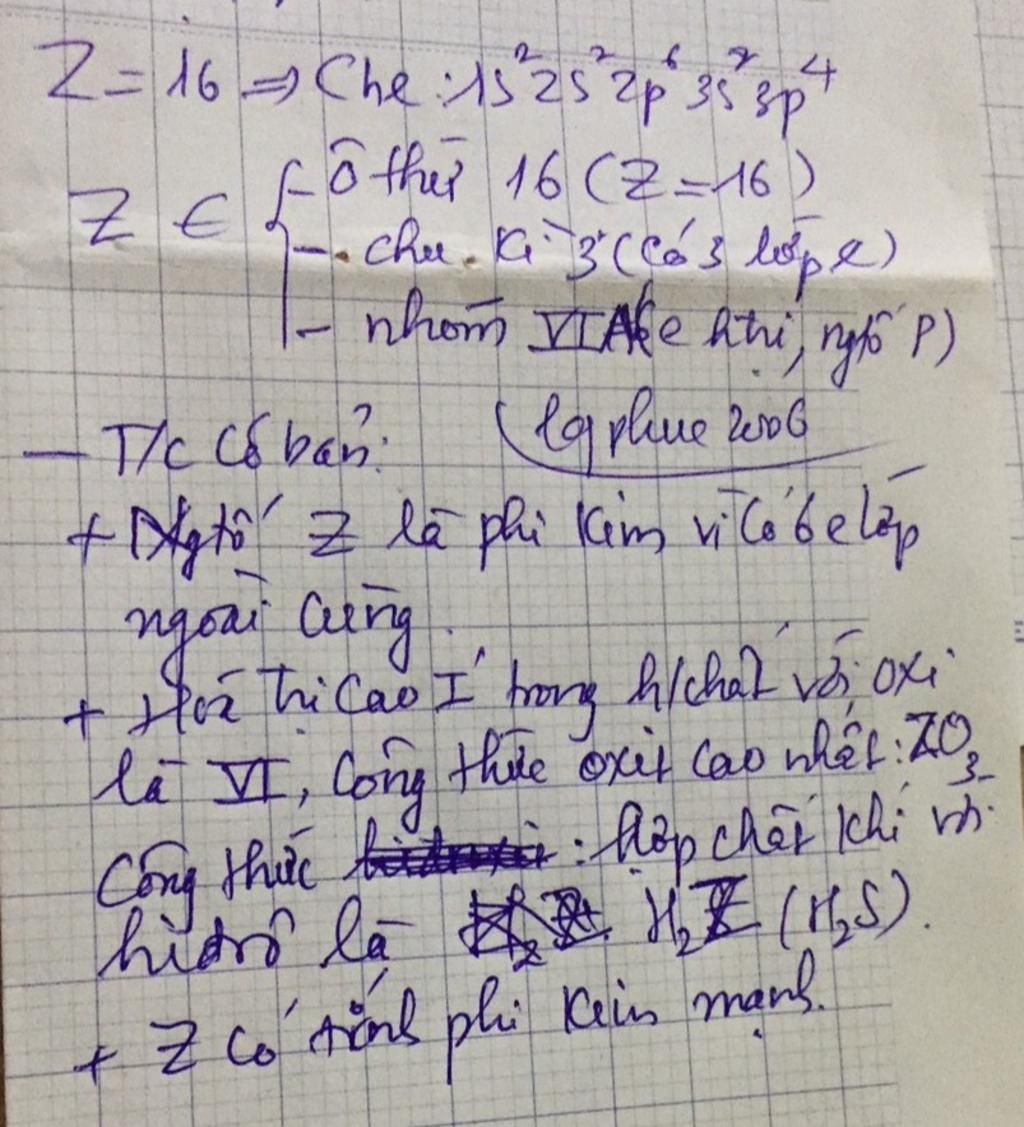 Z = 16 => Che : 1s²2s²2p⁶3s²3p⁴
Z ∈ { - Ô thứ 16 (Z = 16)
- chu kì 3 (có 3 lớp e)
- nhóm VIA (6e htrị, ngtố p)
lgphuc2006
- T/c cơ bản:
+ Ngtố Z là phi kim vì có 6e lớp
ngoài cùng.
+ Hoá trị cao I trong h/chất với oxi
là VI, công thức oxit cao nhất: ZO₃
Công thức : hợp chất khí với
hiđrô là H₂Z (H₂S).
+ Z có tính phi kim mạnh.